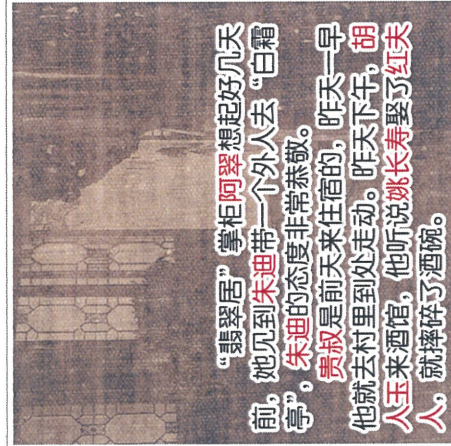 “翡翠居”掌柜阿翠想起好几天
前，她见到朱迪带一个外人去“白霜
亭”，朱迪的态度非常恭敬。
贵叔是前天来住宿的，昨天一早
他就去村里到处走动。昨天下午，胡
人玉来酒馆，他听说姚长寿娶了红夫
人，就摔碎了酒碗。